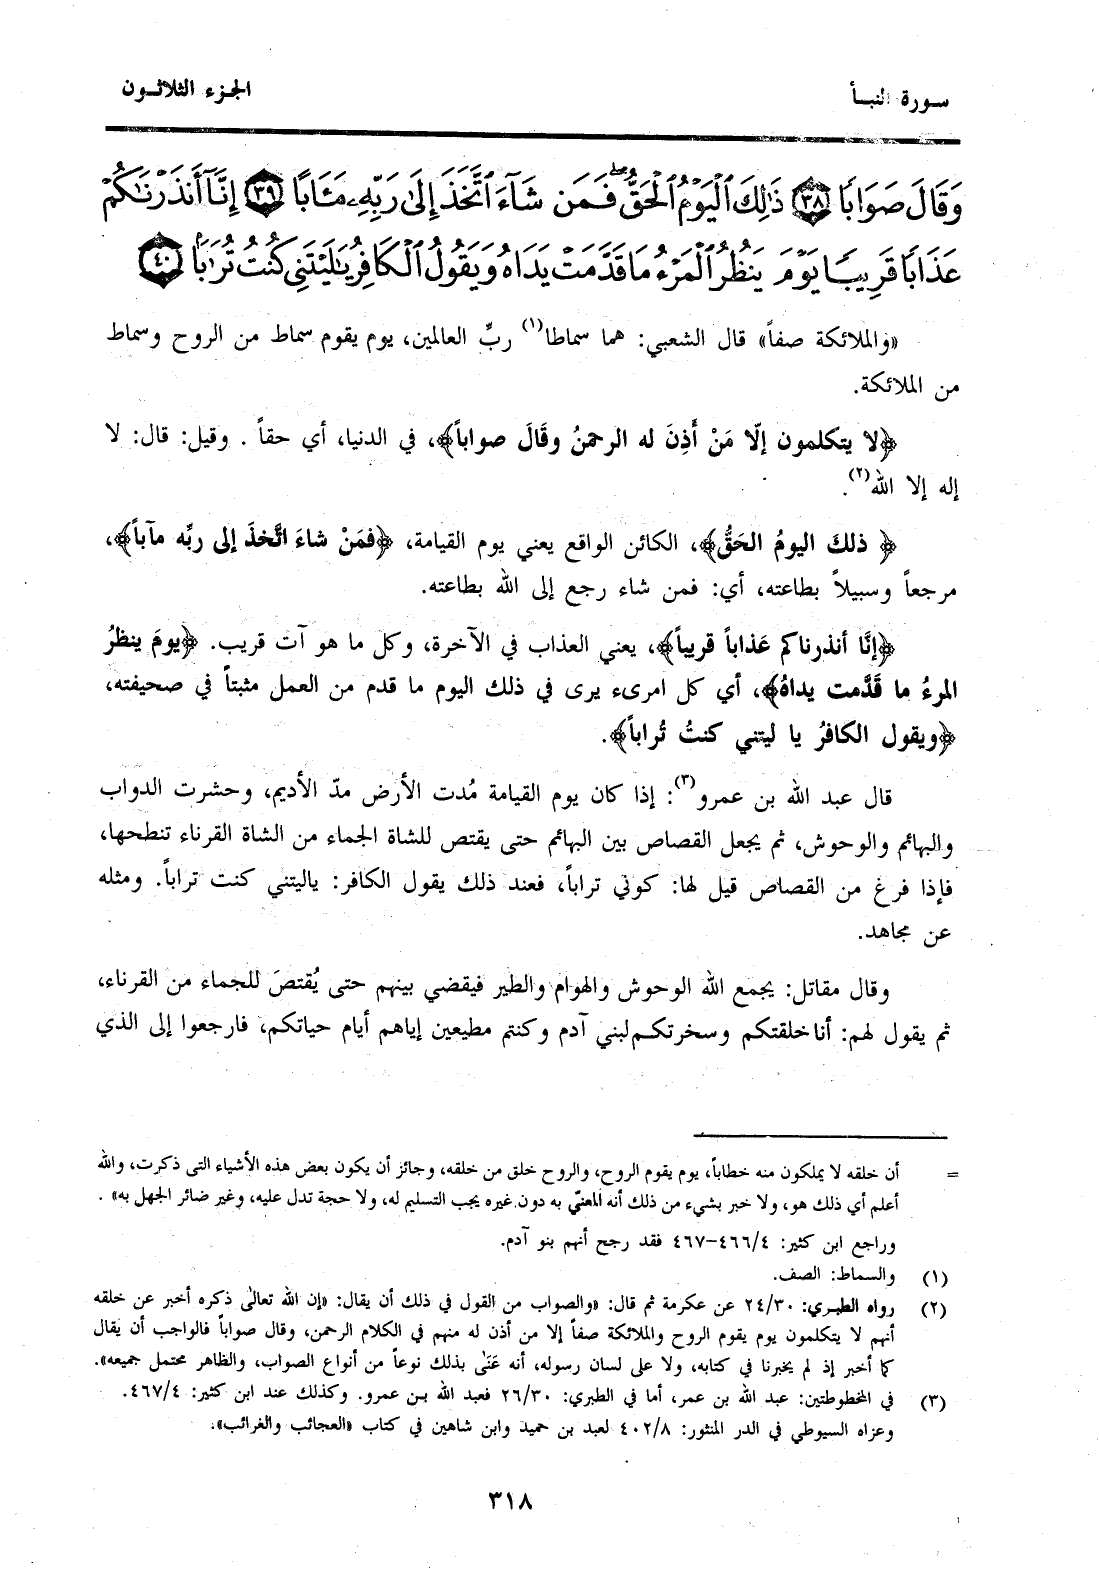 سورة النبأ
الجزء الثلاثون
وَقَالَ صَوَابًا ٣٨ ذَٰلِكَ ٱلْيَوْمُ ٱلْحَقُّ ۖ فَمَن شَآءَ ٱتَّخَذَ إِلَىٰ رَبِّهِۦ مَـَٔابًا ٣٩ إِنَّآ أَنذَرْنَـٰكُمْ
عَذَابًا قَرِيبًا يَوْمَ يَنظُرُ ٱلْمَرْءُ مَا قَدَّمَتْ يَدَاهُ وَيَقُولُ ٱلْكَافِرُ يَـٰلَيْتَنِى كُنتُ تُرَٰبًۢا ٤٠
«والملائكة صفاً» قال الشعبي: هما سماطا(١) ربِّ العالمين، يوم يقوم سماط من الروح وسماط
من الملائكة.
﴿لا يتكلمون إلّا مَنْ أَذِنَ له الرحمنُ وقَالَ صواباً﴾، في الدنيا، أي حقاً . وقيل: قال: لا
إله إلا الله(٢).
﴿ ذلكَ اليومُ الحَقُّ﴾، الكائن الواقع يعني يوم القيامة، ﴿فمَنْ شاءَ اتَّخذَ إلى ربِّه مآباً﴾،
مرجعاً وسبيلاً بطاعته، أي: فمن شاء رجع إلى الله بطاعته.
﴿إنَّا أنذرناكم عَذاباً قريباً﴾، يعني العذاب في الآخرة، وكل ما هو آت قريب. ﴿يومَ ينظرُ
المرءُ ما قَدَّمت يداهُ﴾، أي كل امرىء يرى في ذلك اليوم ما قدم من العمل مثبتاً في صحيفته،
﴿ويقول الكافرُ يا ليتني كنتُ تُراباً﴾.
قال عبد الله بن عمرو(٣): إذا كان يوم القيامة مُدت الأرض مدّ الأديم، وحشرت الدواب
والبهائم والوحوش، ثم يجعل القصاص بين البهائم حتى يقتص للشاة الجماء من الشاة القرناء تنطحها،
فإذا فرغ من القصاص قيل لها: كوني تراباً، فعند ذلك يقول الكافر: ياليتني كنت تراباً. ومثله
عن مجاهد.
وقال مقاتل: يجمع الله الوحوش والهوام والطير فيقضي بينهم حتى يُقتصَ للجماء من القرناء،
ثم يقول لهم: أنا خلقتكم وسخرتكم لبني آدم وكنتم مطيعين إياهم أيام حياتكم، فارجعوا إلى الذي
= أن خلقه لا يملكون منه خطاباً، يوم يقوم الروح، والروح خلق من خلقه، وجائز أن يكون بعض هذه الأشياء التى ذكرت، والله
أعلم أي ذلك هو، ولا خبر بشيء من ذلك أنه المعنيّ به دون غيره يجب التسليم له، ولا حجة تدل عليه، وغير ضائر الجهل به» .
وراجع ابن كثير: ٤/٤٦٦-٤٦٧ فقد رجح أنهم بنو آدم.
(١) والسماط: الصف.
(٢) رواه الطبري: ٢٤/٣٠ عن عكرمة ثم قال: «والصواب من القول في ذلك أن يقال: «إن الله تعالى ذكره أخبر عن خلقه
أنهم لا يتكلمون يوم يقوم الروح والملائكة صفاً إلا من أذن له منهم في الكلام الرحمن، وقال صواباً فالواجب أن يقال
كما أخبر إذ لم يخبرنا في كتابه، ولا على لسان رسوله، أنه عَنَى بذلك نوعاً من أنواع الصواب، والظاهر محتمل جميعه».
(٣) في المخطوطتين: عبد الله بن عمر، أما في الطبري: ٢٦/٣٠ فعبد الله بن عمرو. وكذلك عند ابن كثير: ٤٦٧/٤.
وعزاه السيوطي في الدر المنثور: ٤٠٢/٨ لعبد بن حميد وابن شاهين في كتاب «العجائب والغرائب».
٣١٨